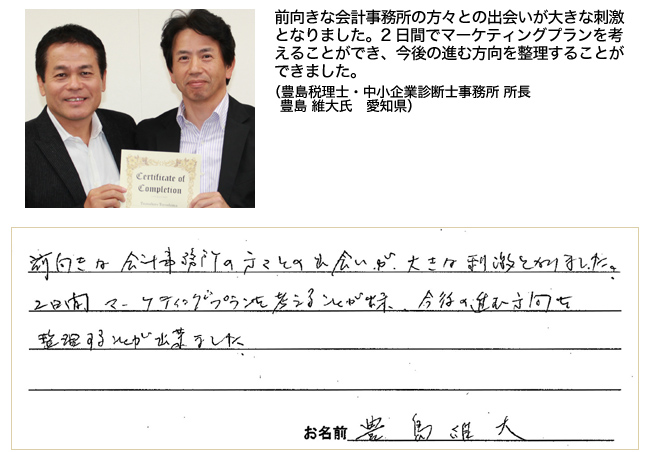 前向きな会計事務所の方々との出会いが大きな刺激
となりました。2日間でマーケティングプランを考
えることができ、今後の進む方向を整理することが
できました。
（豊島税理士・中小企業診断士事務所 所長
豊島 維大氏　愛知県）
Certificate of
Completion
前向きな会計事務所の方々との出会いが、大きな刺激となりました。
2日間 マーケティングプランを考えることが出来、今後の進む方向を
整理することが出来ました
お名前 豊島維大